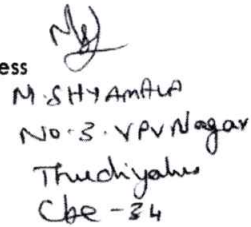 ess
M.SHYAMALA
No.3.VPV Nagar
Thudiyalur
Cbe-34